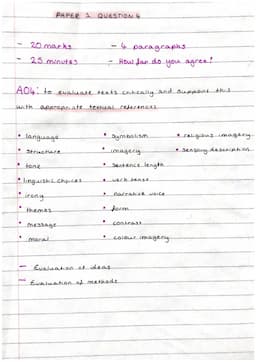 PAPER 1 QUESTION 4
- 20 marks - 4 paragraphs
- 25 minutes - How far do you agree?
AO4: to evaluate texts critically and support this
with appropriate textual references
• language • symbolism • religious imagery
• structure • imagery • sensory description
• tone • sentence length
• linguistic choices • verb tense
• irony • narrative voice
• themes • form
• message • contrast
• moral • colour imagery
- Evaluation of ideas
- Evaluation of methods